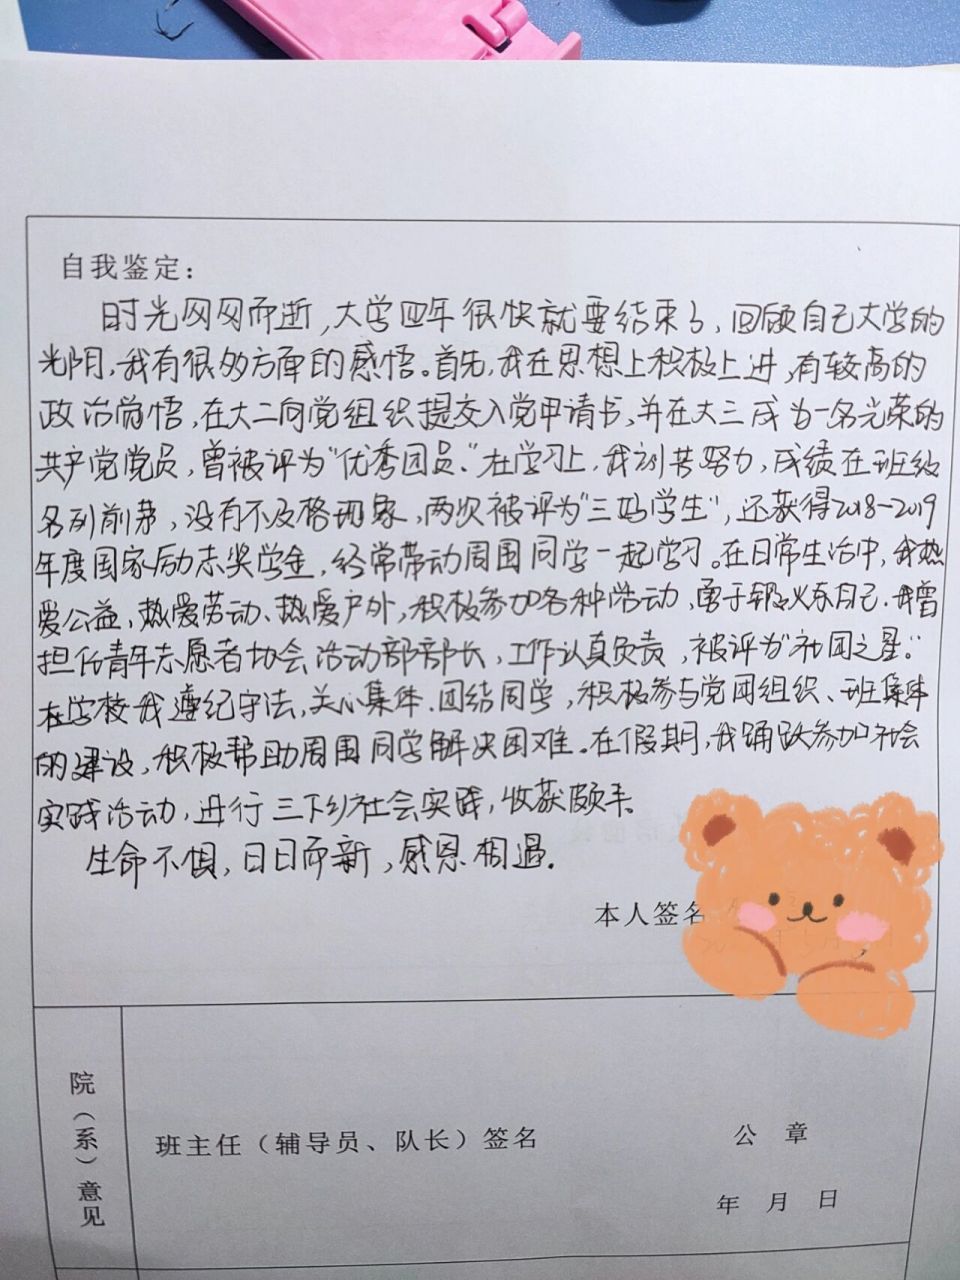 自我鉴定：
时光网网而逝，大学四年很快就要结束了，回顾自己大学的
光阴，我有很多方面的感悟。首先，我在思想上积极上进，有较高的
政治觉悟，在大二向党组织提交入党申请书，并在大三成为一名光荣的
共产党党员，曾被评为“优秀团员。”在学习上，我刻苦努力，成绩在班级
名列前茅，没有不及格现象，两次被评为“三好学生”，还获得2018-2019
年度国家励志奖学金，经常带动周围同学一起学习。在日常生活中，我热
爱公益，热爱劳动、热爱户外，积极参加各种活动，勇于锻炼自己．我曾
担任青年志愿者协会活动部部长，工作认真负责，被评为“社团之星”。
在学校我遵纪守法，关心集体．团结同学，积极参与党团组织、班集体
的建设，积极帮助周围同学解决困难。在假期，我踊跃参加社会
实践活动，进行三下乡社会实践，收获颇丰。
生命不惧，日日而新，感恩相遇．
本人签名
院（系）意见
班主任（辅导员、队长）签名
公 章
年 月 日